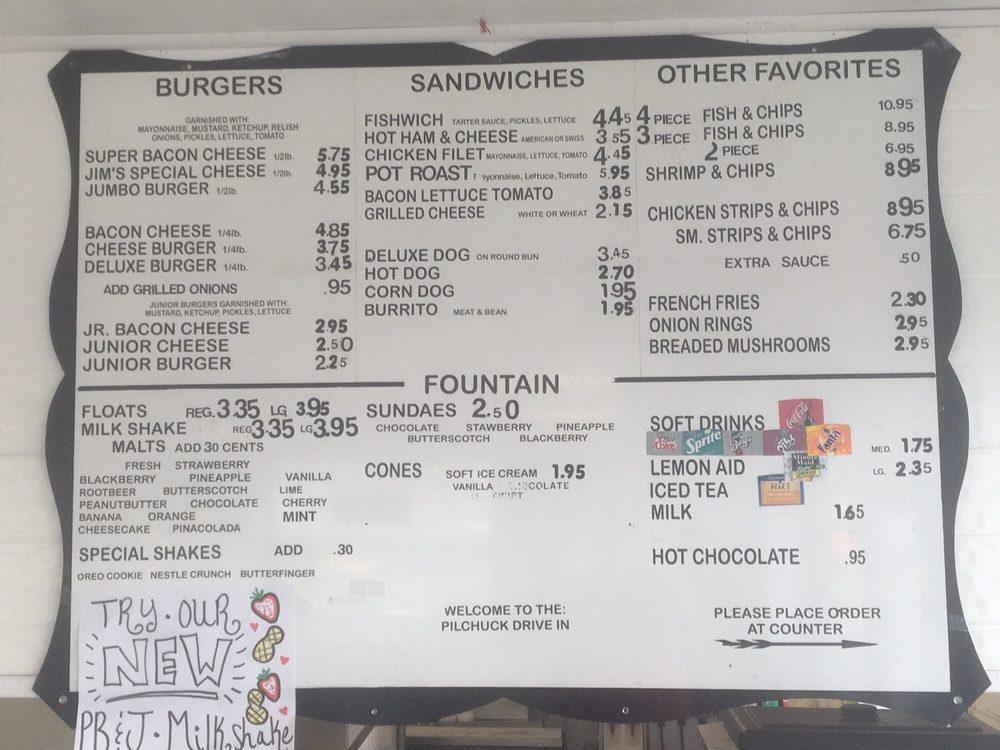 BURGERS
GARNISHED WITH:
MAYONNAISE, MUSTARD, KETCHUP, RELISH
ONIONS, PICKLES, LETTUCE, TOMATO
SUPER BACON CHEESE 1/2lb. 5.75
JIM'S SPECIAL CHEESE 1/2lb. 4.95
JUMBO BURGER 1/2lb. 4.55
BACON CHEESE 1/4lb. 4.85
CHEESE BURGER 1/4lb. 3.75
DELUXE BURGER 1/4lb. 3.45
ADD GRILLED ONIONS .95
JUNIOR BURGERS GARNISHED WITH:
MUSTARD, KETCHUP, PICKLES, LETTUCE
JR. BACON CHEESE 2.95
JUNIOR CHEESE 2.50
JUNIOR BURGER 2.25
SANDWICHES
FISHWICH TARTER SAUCE, PICKLES, LETTUCE 4.45
HOT HAM & CHEESE AMERICAN OR SWISS 3.55
CHICKEN FILET MAYONNAISE, LETTUCE, TOMATO 4.45
POT ROAST ayonnaise, Lettuce, Tomato 5.95
BACON LETTUCE TOMATO 3.85
GRILLED CHEESE WHITE OR WHEAT 2.15
DELUXE DOG ON ROUND BUN 3.45
HOT DOG 2.70
CORN DOG 1.95
BURRITO MEAT & BEAN 1.95
OTHER FAVORITES
4 PIECE FISH & CHIPS 10.95
3 PIECE FISH & CHIPS 8.95
2 PIECE 6.95
SHRIMP & CHIPS 8.95
CHICKEN STRIPS & CHIPS 8.95
SM. STRIPS & CHIPS 6.75
EXTRA SAUCE .50
FRENCH FRIES 2.30
ONION RINGS 2.95
BREADED MUSHROOMS 2.95
FOUNTAIN
FLOATS REG. 3.35 LG 3.95
MILK SHAKE REG 3.35 LG 3.95
MALTS ADD 30 CENTS
FRESH STRAWBERRY
BLACKBERRY PINEAPPLE VANILLA
ROOTBEER BUTTERSCOTCH LIME
PEANUTBUTTER CHOCOLATE CHERRY
BANANA ORANGE MINT
CHEESECAKE PINACOLADA
SPECIAL SHAKES ADD .30
OREO COOKIE NESTLE CRUNCH BUTTERFINGER
SUNDAES 2.50
CHOCOLATE STAWBERRY PINEAPPLE
BUTTERSCOTCH BLACKBERRY
CONES SOFT ICE CREAM 1.95
VANILLA
SOFT DRINKS
Coca-Cola
Coke Sprite Barq's Pibb Fanta
Minute Maid
MED. 1.75
LEMON AID LG. 2.35
ICED TEA
MILK 1.65
HOT CHOCOLATE .95
WELCOME TO THE:
PILCHUCK DRIVE IN
PLEASE PLACE ORDER
AT COUNTER
TRY·OUR
NEW
PB&J·Milkshake